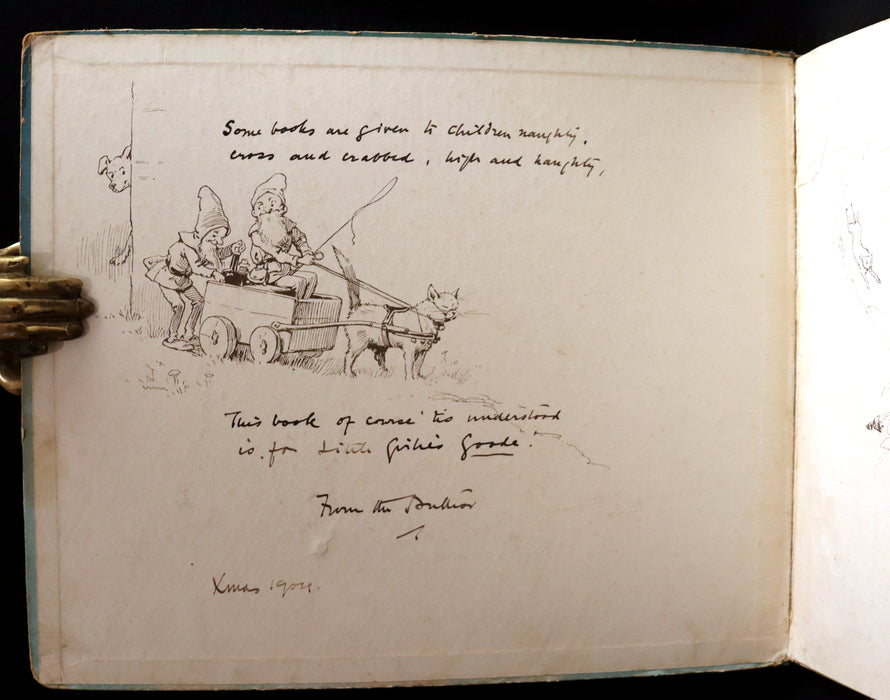 Some books are given to children naughty,
cross and crabbed, high and haughty,
This book of course 'tis understood
is for Little Goode!
From the Author
Xmas 1904.